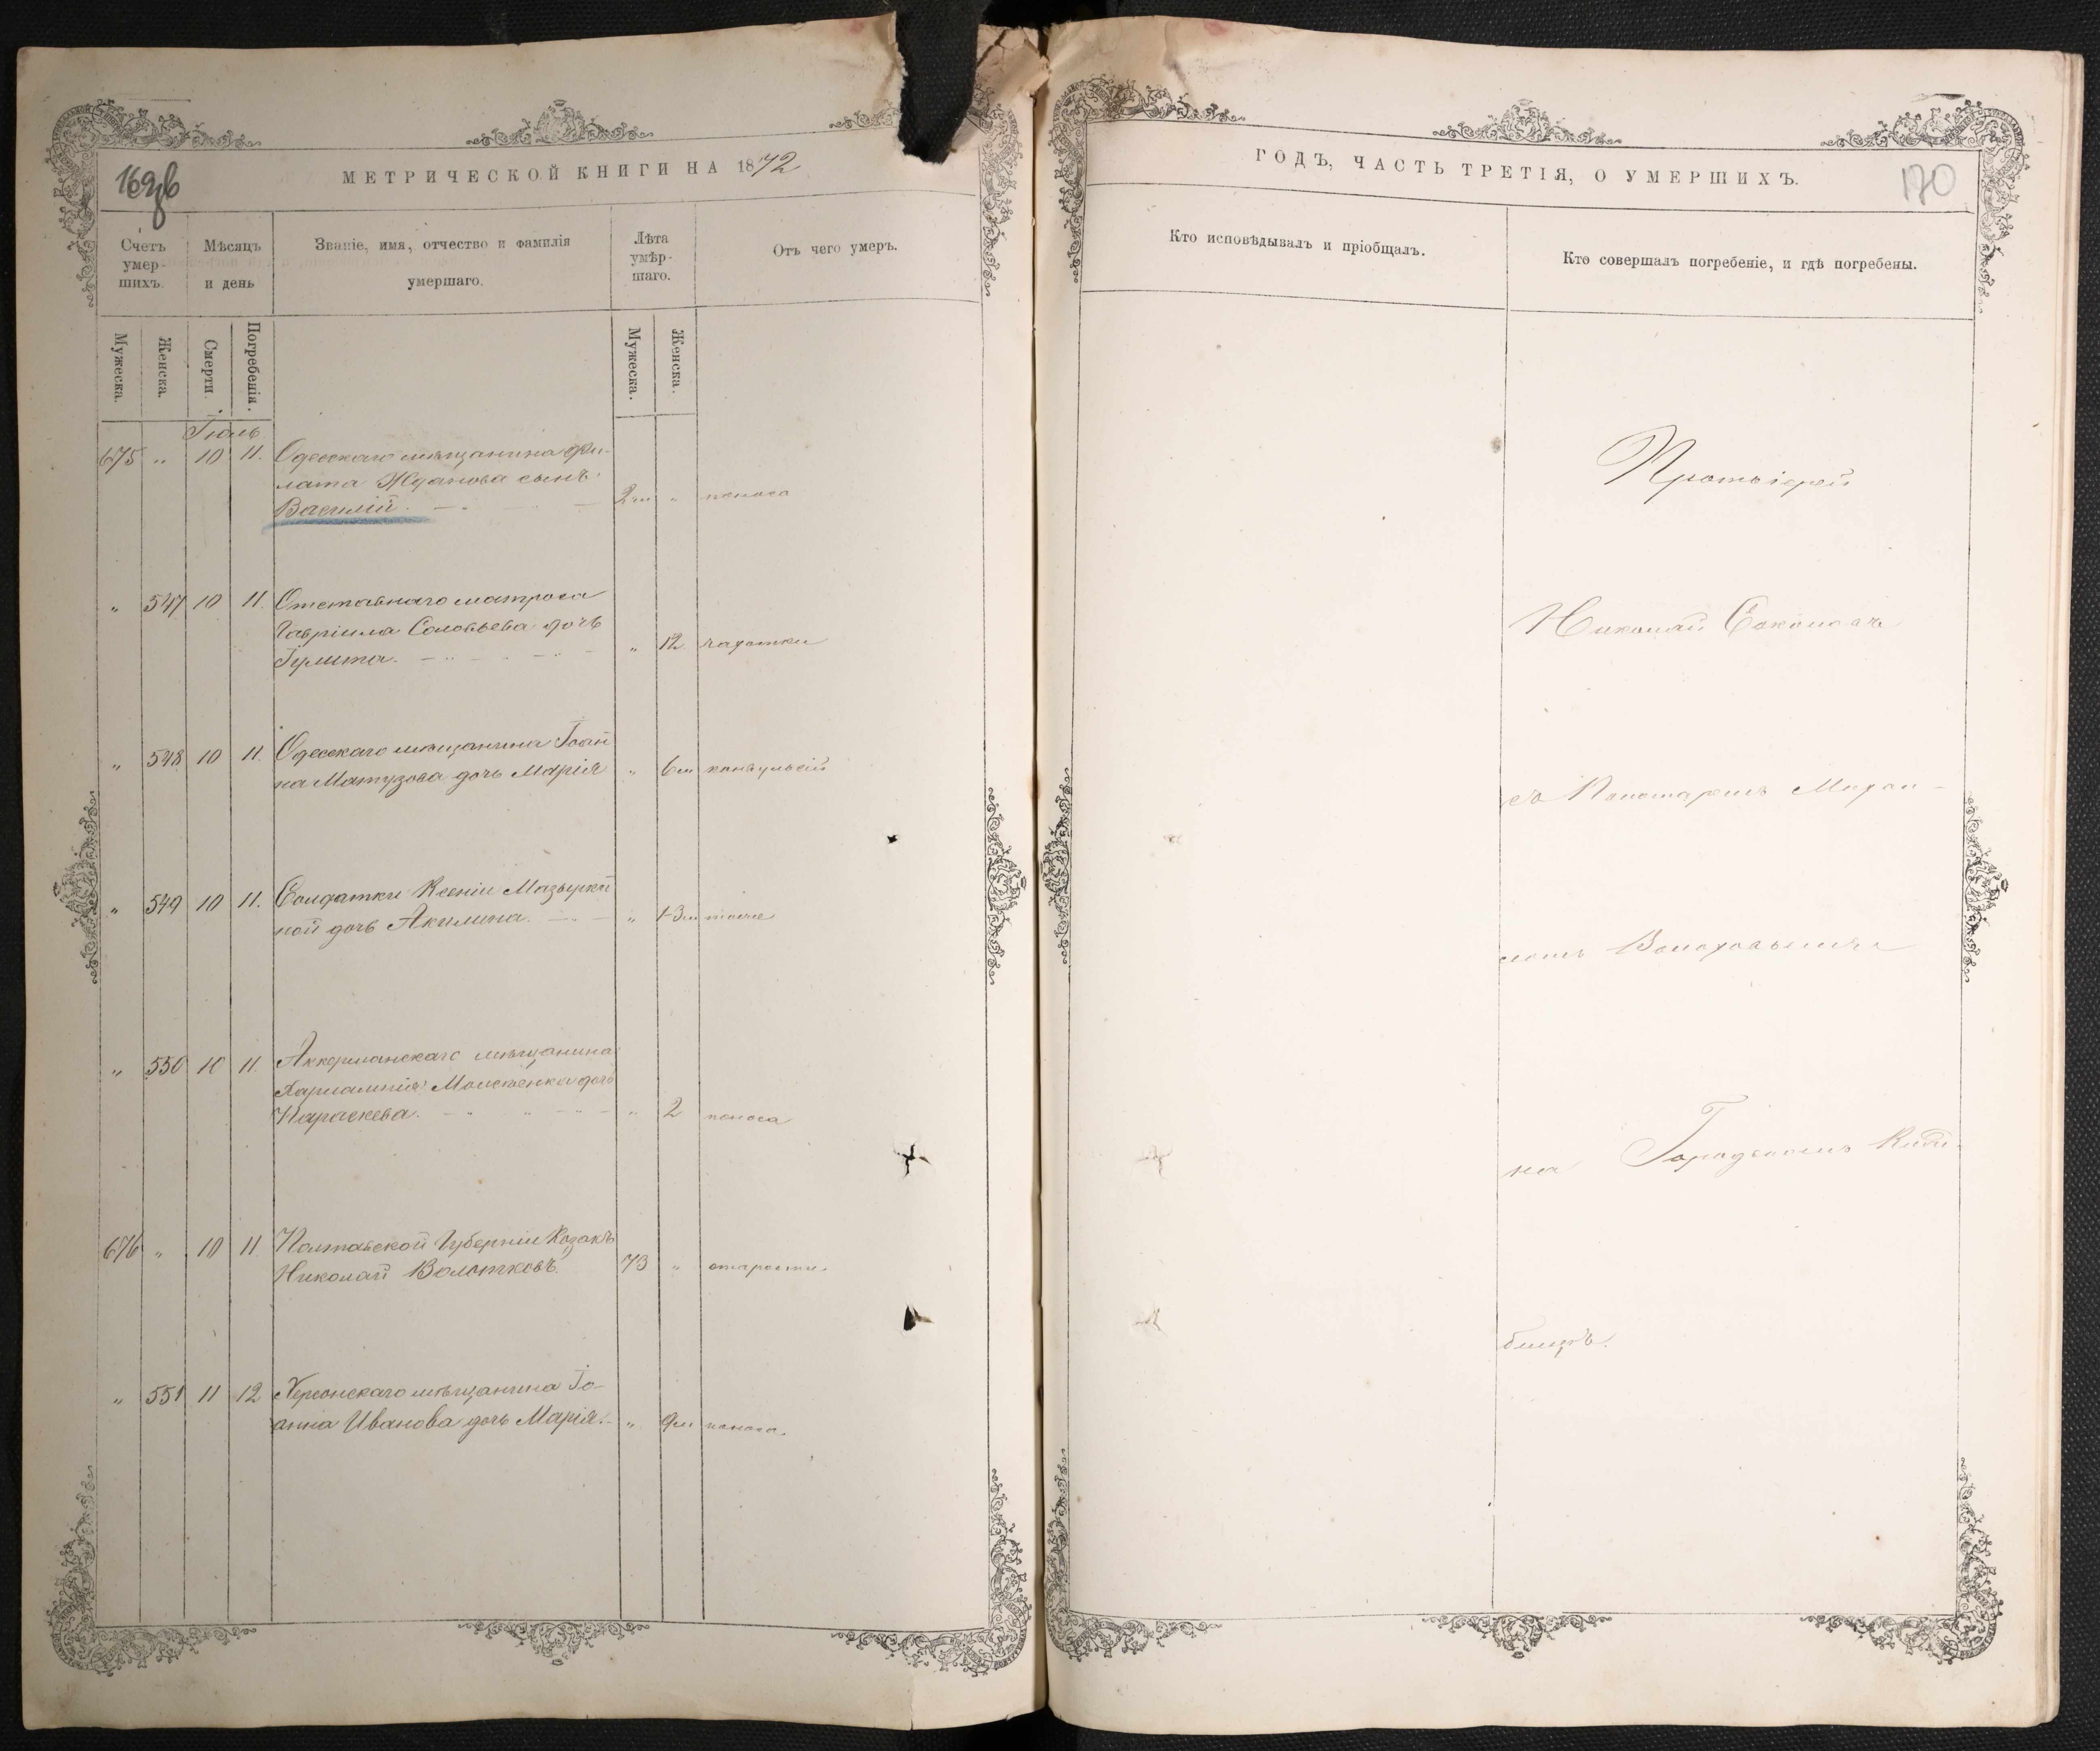 169об
МЕТРИЧЕСКОЙ КНИГИ НА 1872
Счетъ умер- шихъ.
Мѣсяцъ и день
Званіе, имя, отчество и фамилія умершаго.
Лѣта умѣр- шаго.
Отъ чего умеръ.
Мужеска.
Женска.
Смерти.
Погребенія.
Мужеска.
Женска.
Іюль
675 " 10 11. Одесскаго мѣщанина Фи-
лата Жданова сынъ
Василій. 2м " поноса
" 547 10 11. Отставнаго матроса
Гавріила Соловьева дочь
Іулита. " 12 чахотки
" 548 10 11. Одесскаго мѣщанина Іоан
на Матузова дочь Марія " 6м конвульсій
" 549 10 11. Солдатки Ксеніи
ной дочь Акилина. "
" 550 10 11. Аккерманскаго мѣщанина
Харлампія дочь
Параскева. " 2 поноса
676 " 10 11. Полтавской Губерніи Козакъ
Николай Болотковъ. 73 " старости.
" 551 11 12 Херсонскаго мѣщанина Іо-
анна Иванова дочь Марія. " 9м поноса.
ГОДЪ, ЧАСТЬ ТРЕТІЯ, О УМЕРШИХЪ.
170
Кто исповѣдывалъ и пріобщалъ.
Кто совершалъ погребеніе, и гдѣ погребены.
Протоіерей
Николай Соколовъ
съ Пономаремъ Михаи-
ломъ
на Городскомъ Клад-
бищѣ.